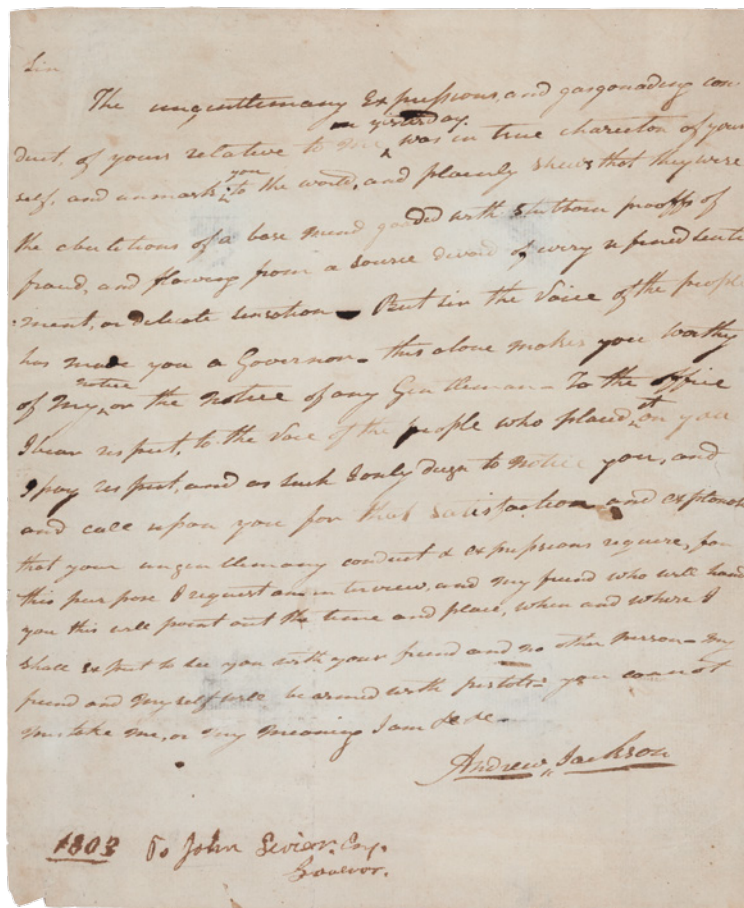 Sir
The ungentlemany Expressions, and gasgonading con-
duct, of yours relative to me on yesterday was in true charector of your
self, and unmask you to the world, and plainly shews that they were
the ebulitions of a base mind goaded with stubborn prooffs of
fraud, and flowing from a source devoid of every refined senti
ment, or delicate sensation. But sir the Voice of the people
has made you a Governor. this alone makes you worthy
of my notice or the notice of any Gentleman. To the office
I bear respect, to the Voice of the people who placed it on you
I pay respect, and as such I only deign to notice you, and
and call upon you for that satisfaction and explanat
that your ungentlemany conduct & expressions require, for
this purpose I request an interview, and my friend who will hand
you this will point out the time and place, when and where I
shall expect to see you with your friend and no other person. my
friend and myself will be armed with pistols. you cannot
mistake me, or my meaning I am &c &c.
Andrew Jackson
1803 To John Sevier, Esq.
Governor.